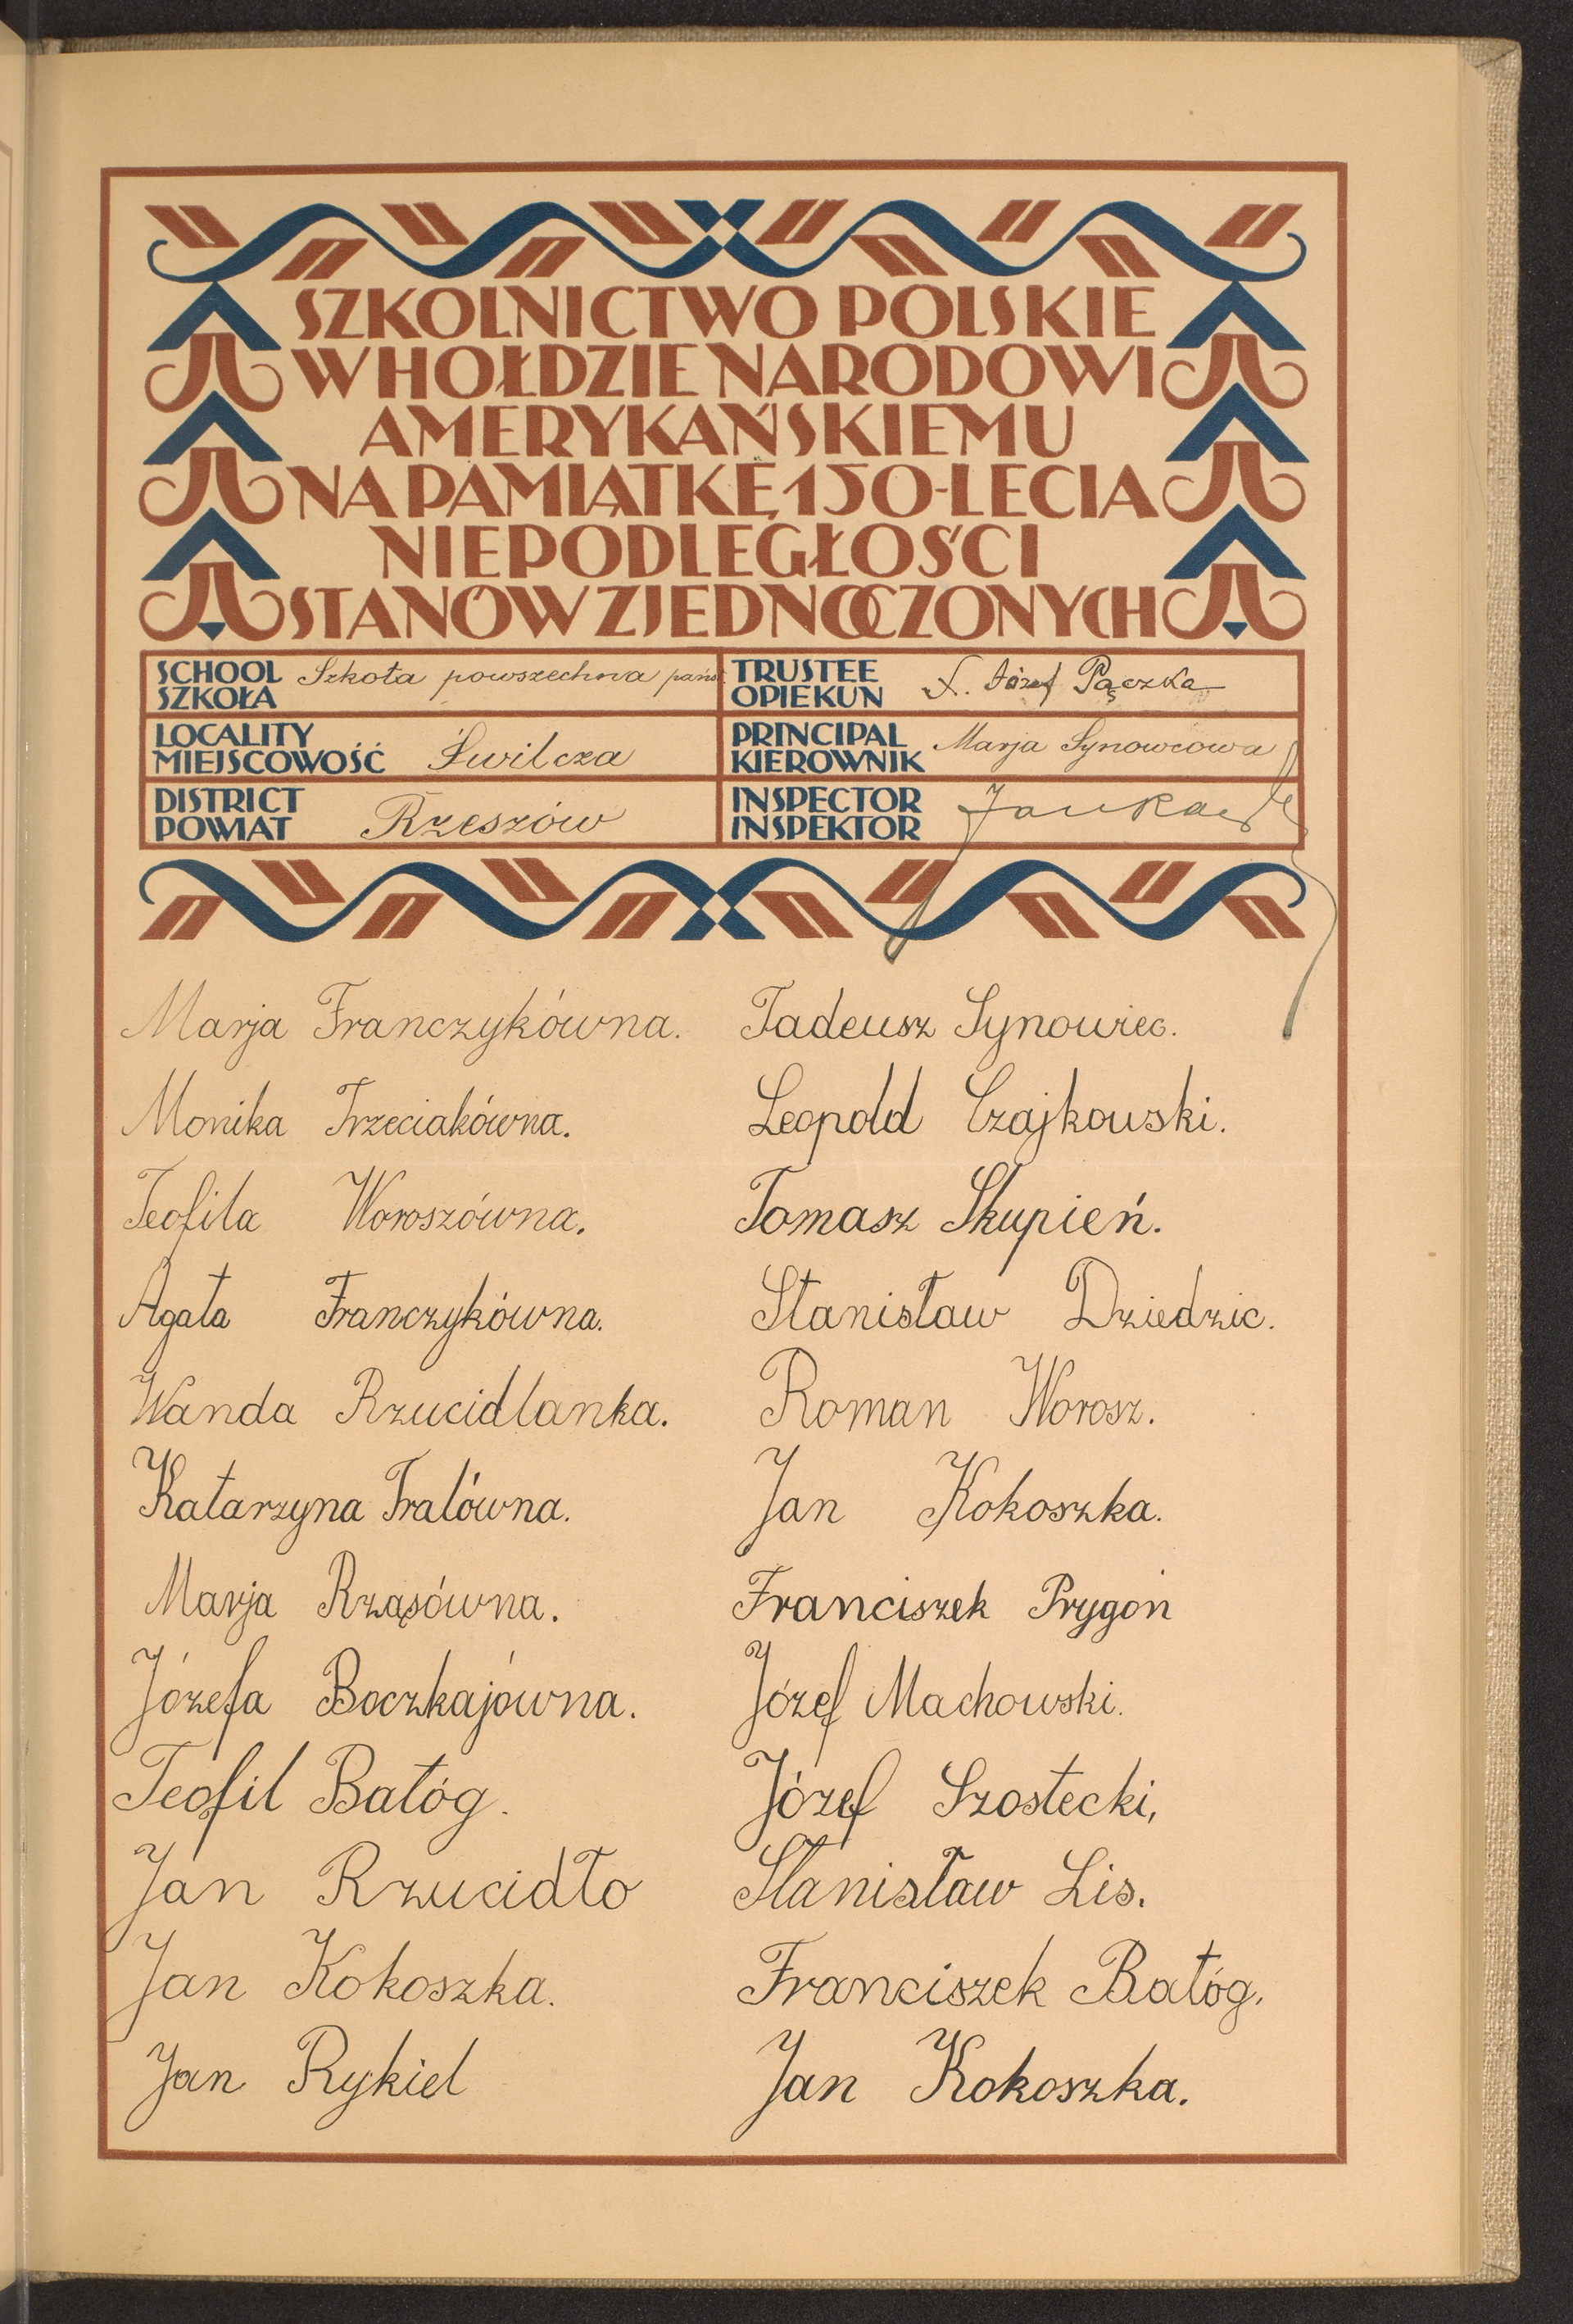 SZKOLNICTWO POLSKIE
W HOŁDZIE NARODOWI
AMERYKAŃSKIEMU
NA PAMIĄTKĘ 150-LECIA
NIEPODLEGŁOŚCI
STANÓW ZJEDNOCZONYCH
SCHOOL
SZKOŁA
Szkoła powszechna państ.
TRUSTEE
OPIEKUN
X. Józef Pączka
LOCALITY
MIEJSCOWOŚĆ
Świlcza
PRINCIPAL
KIEROWNIK
Marja Synowcowa
DISTRICT
POWIAT
Rzeszów
INSPECTOR
INSPEKTOR
Marja Franczykówna.
Monika Trzeciakówna.
Teofila Woroszówna.
Agata Franczykówna.
Wanda Rzucidlanka.
Katarzyna Tralówna.
Marja Rząsówna.
Józefa Boczkajówna.
Teofil Batóg.
Jan Rzucidło
Jan Kokoszka.
Jan Rykiel
Tadeusz Synowiec.
Leopold Czajkowski.
Tomasz Skupień.
Stanisław Dziedzic.
Roman Worosz.
Jan Kokoszka.
Franciszek Prygoń
Józef Machowski.
Józef Szostecki,
Stanisław Lis.
Franciszek Batóg.
Jan Kokoszka.